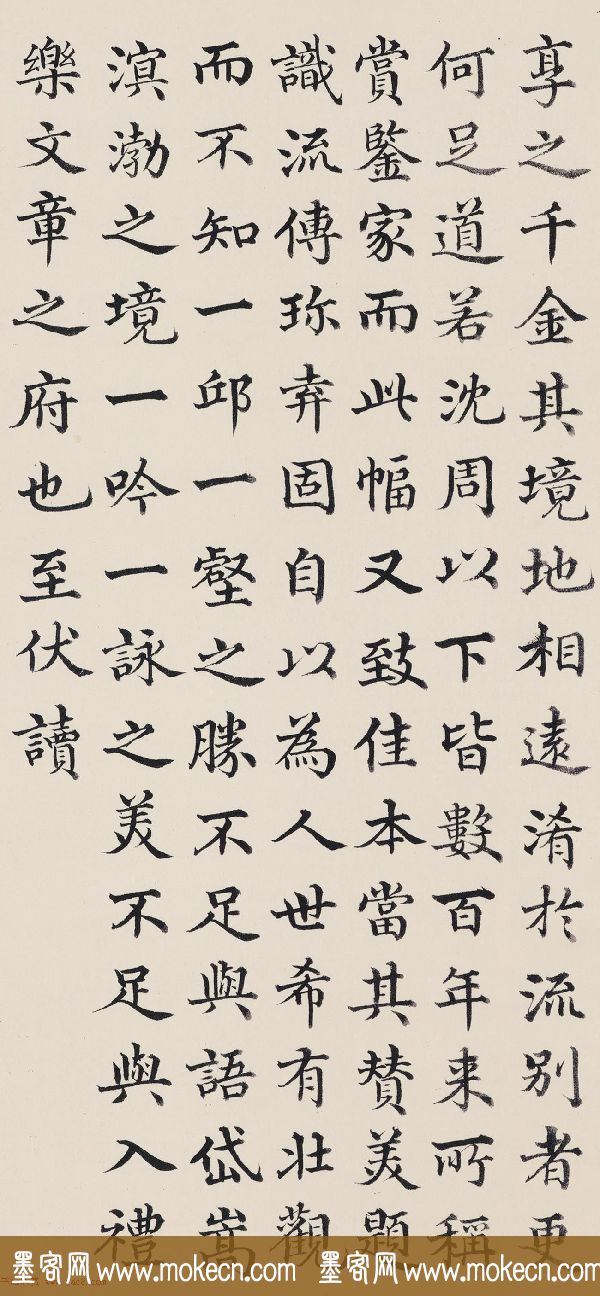 享之千金其境地相遠淆於流別者更
何足道若沈周以下皆數百年来所稱
賞鑒家而此幅又致佳本當其賛美題
識流傳珎弆固自以為人世希有壮觀
而不知一邱一壑之勝不足與語岱嵩
溟渤之境一吟一詠之美不足與入禮
樂文章之府也至伏讀
墨客网 www.mokecn.com 墨客网 www.mokecn.com